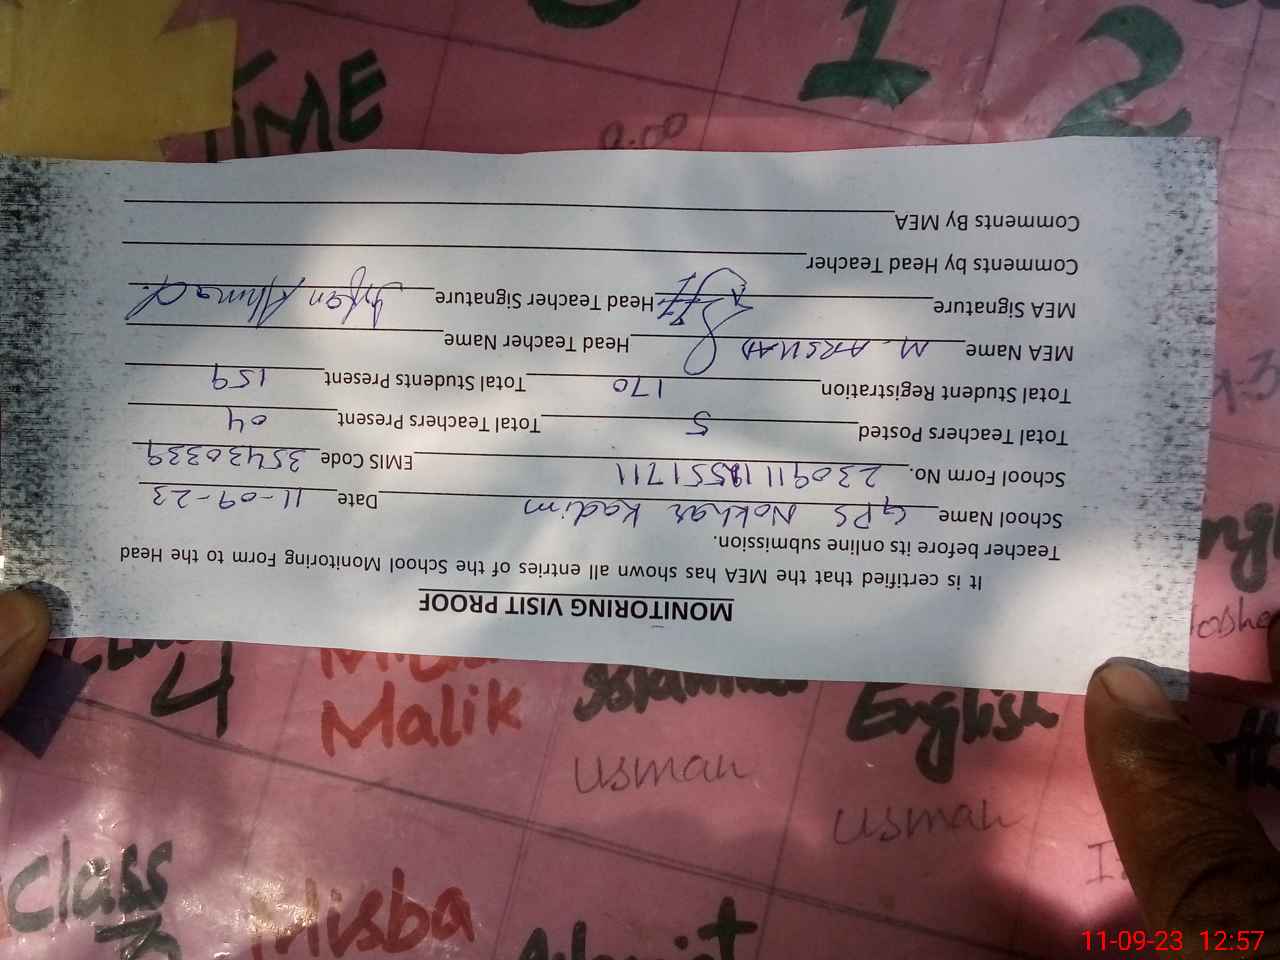 TIME
1
2
8:00
MONITORING VISIT PROOF
It is certified that the MEA has shown all entries of the School Monitoring Form to the Head
Teacher before its online submission.
School Name GPS Nokhar Kadim Date 11-09-23
School Form No. EMIS Code 35430339
Total Teachers Posted 5 Total Teachers Present 04
Total Student Registration 170 Total Students Present 159
MEA Name M. ARSHAD Head Teacher Name
MEA Signature Head Teacher Signature Irfan Ahmad
Comments by Head Teacher
Comments By MEA
4 Malik English
usman usman
Class Misba
11-09-23 12:57